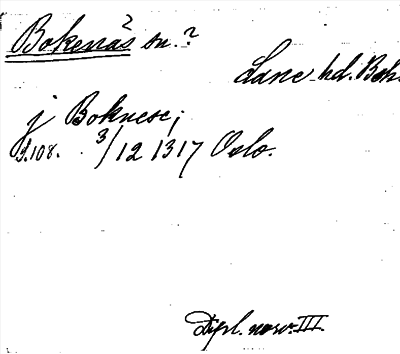 Bokenäs sn.?
Lane hd. Boh.
j Boknese;
s.108. 3/12 1317 Oslo.
Dipl. norv. III